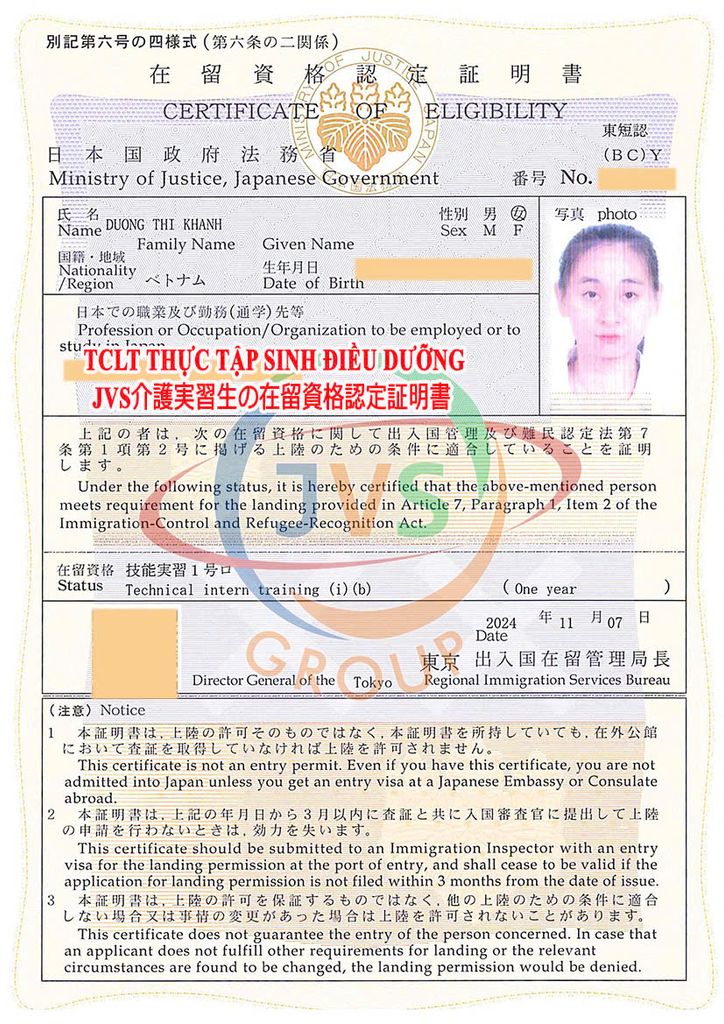 別記第六号の四様式 (第六条の二関係)
在留資格認定証明書
CERTIFICATE OF ELIGIBILITY
MINISTRY OF JUSTICE, JAPAN
東短認
日本国政府法務省
(BC)Y
Ministry of Justice, Japanese Government
番号 No.
氏 名
Name DUONG THI KHANH
Family Name Given Name
性別 男 女
Sex M F
写真 photo
国籍・地域
Nationality
/Region ベトナム
生年月日
Date of Birth
日本での職業及び勤務(通学)先等
Profession or Occupation/Organization to be employed or to
study in Japan
TCLT THỰC TẬP SINH ĐIỀU DƯỠNG
JVS介護実習生の在留資格認定証明書
上記の者は，次の在留資格に関して出入国管理及び難民認定法第7
条第1項第2号に掲げる上陸のための条件に適合していることを証明
します。
Under the following status, it is hereby certified that the above-mentioned person
meets requirement for the landing provided in Article 7, Paragraph 1, Item 2 of the
Immigration-Control and Refugee-Recognition Act.
JVS
GROUP
在留資格 技能実習1号ロ
Status Technical intern training (i)(b)
( One year )
2024 年 11 月 07 日
Date
東京 出入国在留管理局長
Director General of the Tokyo Regional Immigration Services Bureau
(注意) Notice
1 本証明書は，上陸の許可そのものではなく，本証明書を所持していても，在外公館
において査証を取得していなければ上陸を許可されません。
This certificate is not an entry permit. Even if you have this certificate, you are not
admitted into Japan unless you get an entry visa at a Japanese Embassy or Consulate
abroad.
2 本証明書は，上記の年月日から3月以内に査証と共に入国審査官に提出して上陸
の申請を行わないときは，効力を失います。
This certificate should be submitted to an Immigration Inspector with an entry
visa for the landing permission at the port of entry, and shall cease to be valid if the
application for landing permission is not filed within 3 months from the date of issue.
3 本証明書は，上陸の許可を保証するものではなく，他の上陸のための条件に適合
しない場合又は事情の変更があった場合は上陸を許可されないことがあります。
This certificate does not guarantee the entry of the person concerned. In case that
an applicant does not fulfill other requirements for landing or the relevant
circumstances are found to be changed, the landing permission would be denied.